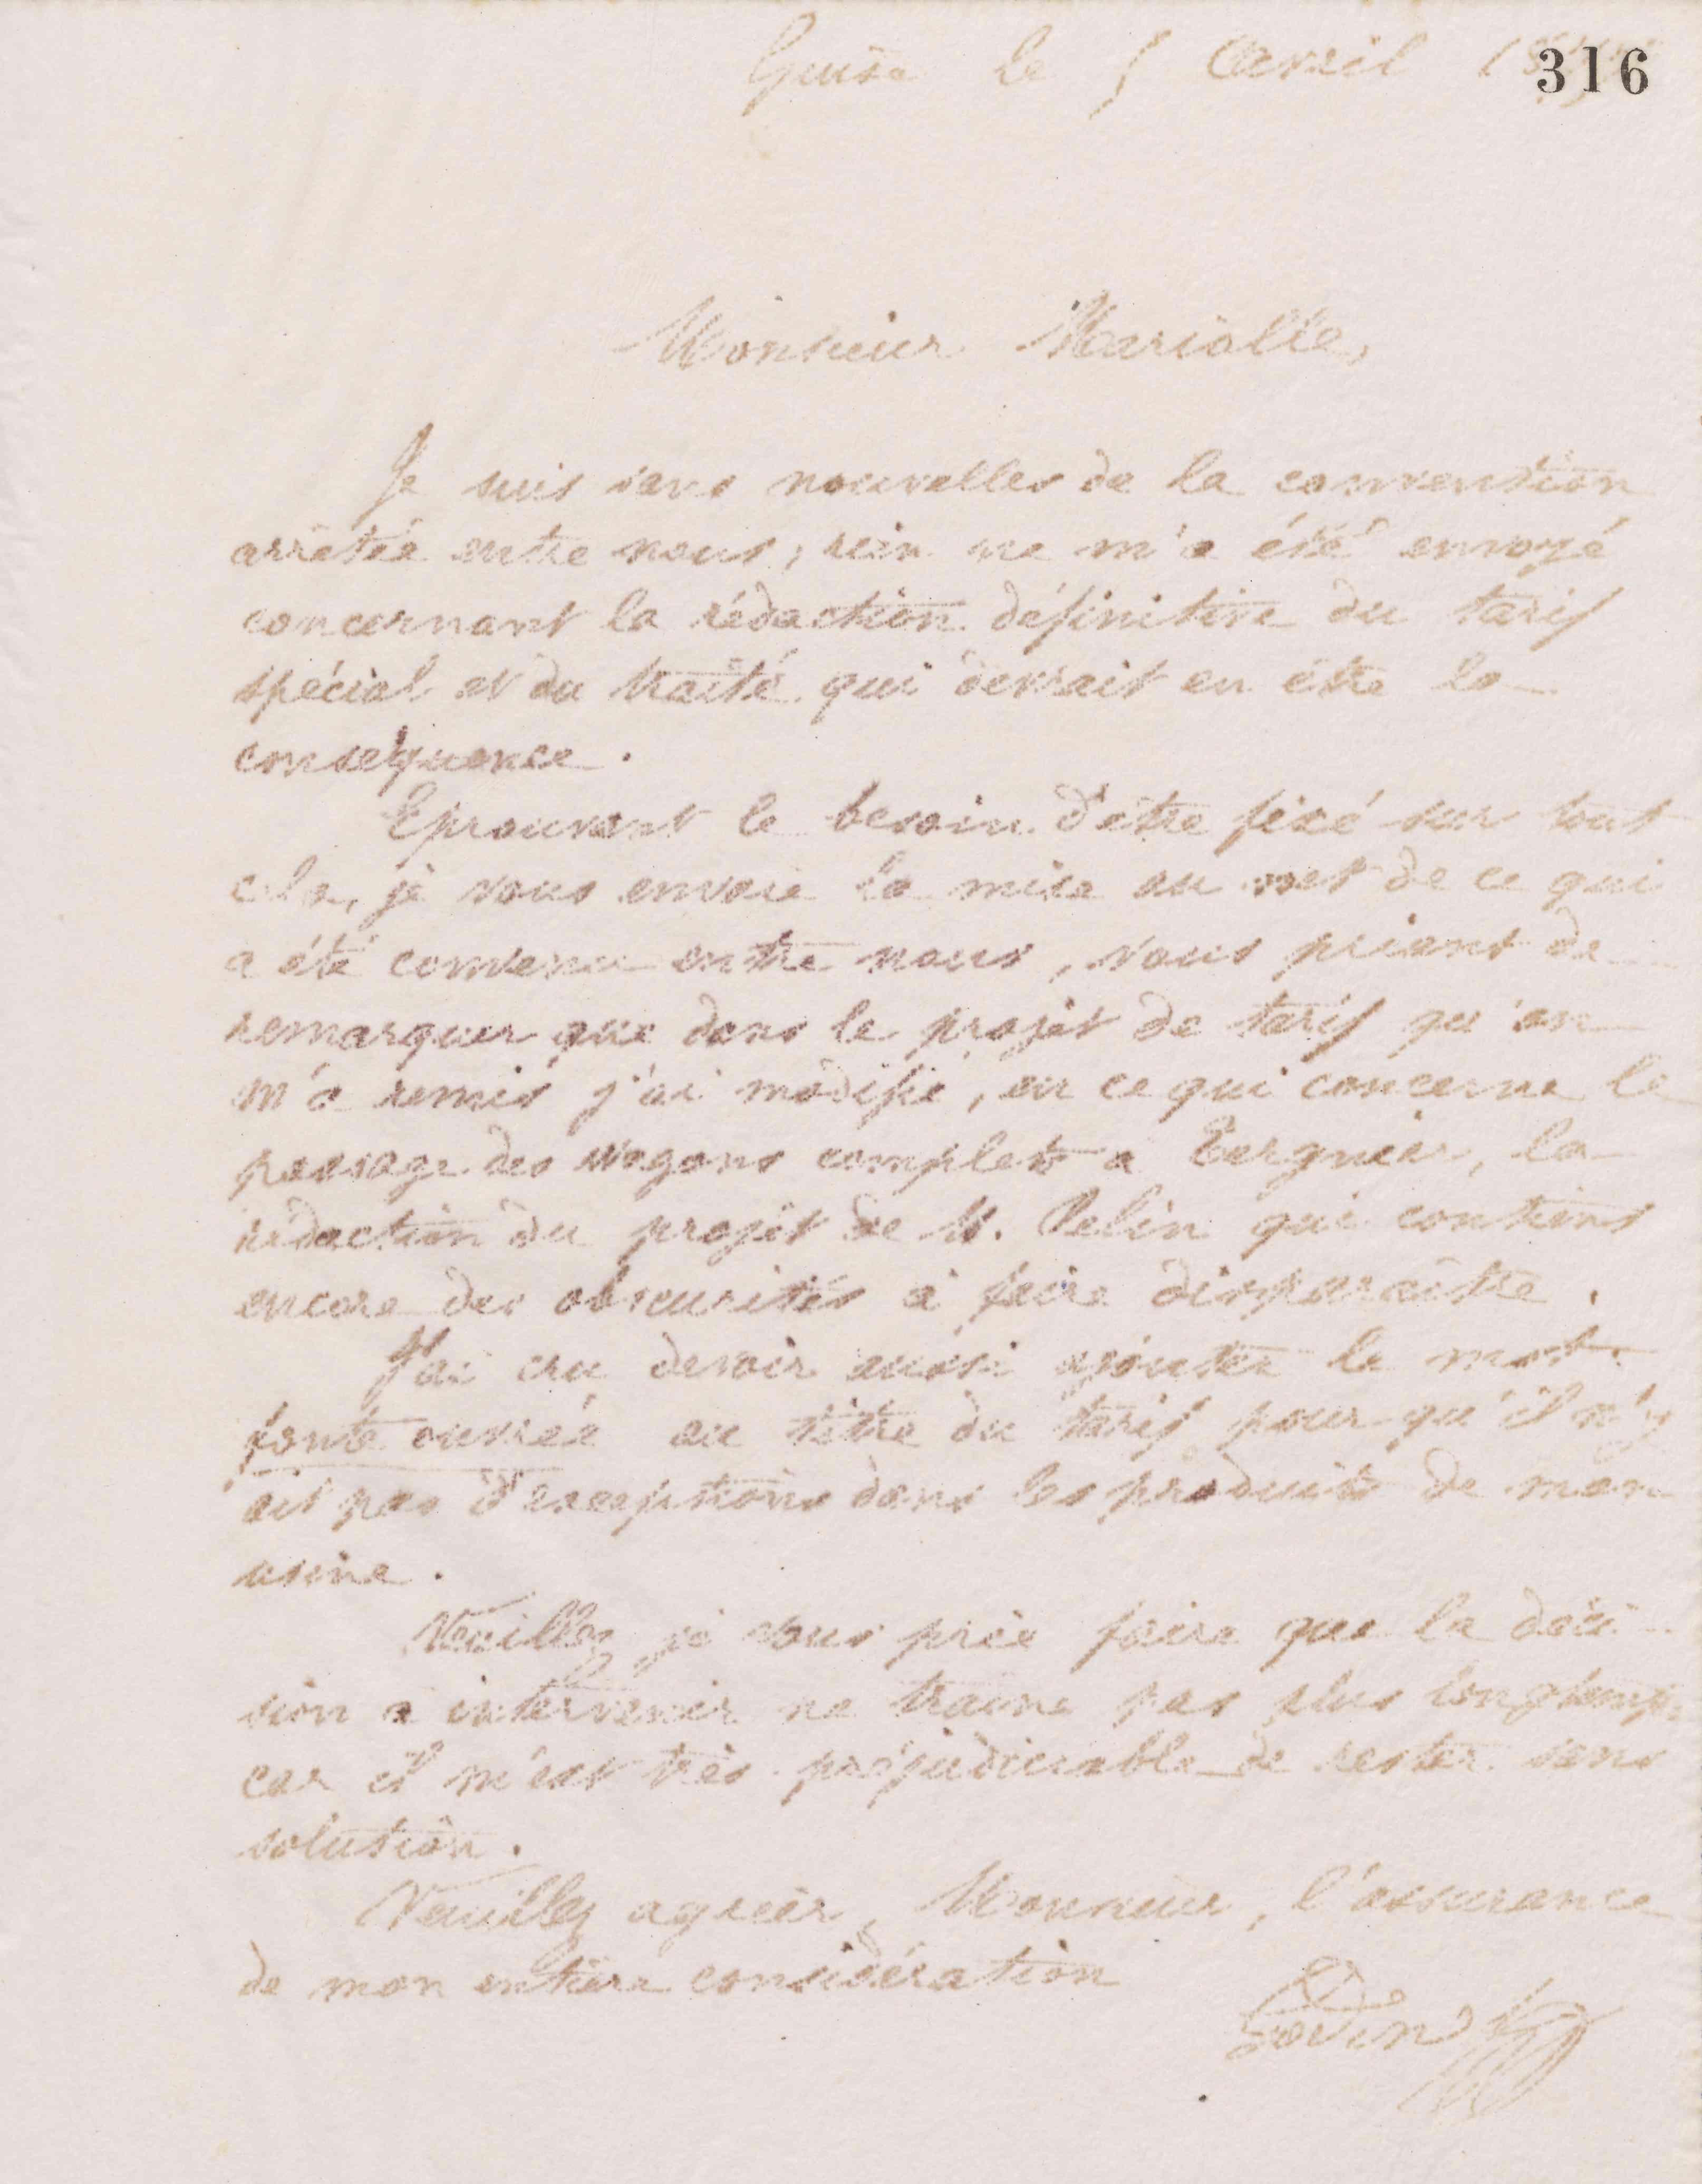 316
Guise le 5 Avril
Monsieur Mariolle,
Je suis sans nouvelles de la convention
arrêtée entre nous, rien ne m'a été envoyé
concernant la rédaction définitive du tarif
spécial et du traité qui devrait en être la
conséquence.
Eprouvant le besoin d'être fixé sur tout
cela, je vous envoie la mise au net de ce qui
a été convenu entre nous, vous priant de
remarquer que dans le projet de tarif qu'on
m'a remis j'ai modifié, en ce qui concerne le
passage des wagons complets a Tergnier, la
rédaction du projet de M. Pelin qui contient
encore des obscurités à faire disparaître.
J'ai cru devoir aussi ajouter le mot
fonte ouvrée au titre du tarif pour qu'il n'y
ait pas d'exceptions dans les produits de mon
usine.
Veuillez je vous prie faire que la déci-
sion a intervenir ne traine pas plus longtemps
car il m'est très préjudiciable de rester sans
solution.
Veuillez agréer, Monsieur, l'assurance
de mon entière considération
Godin